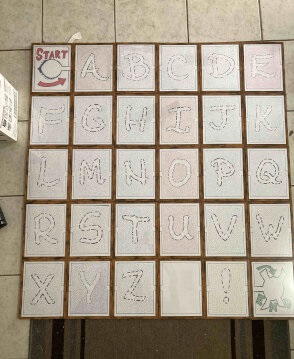 START A B C D E
F G H I J K
L M N O P Q
R S T U V W
X Y Z !